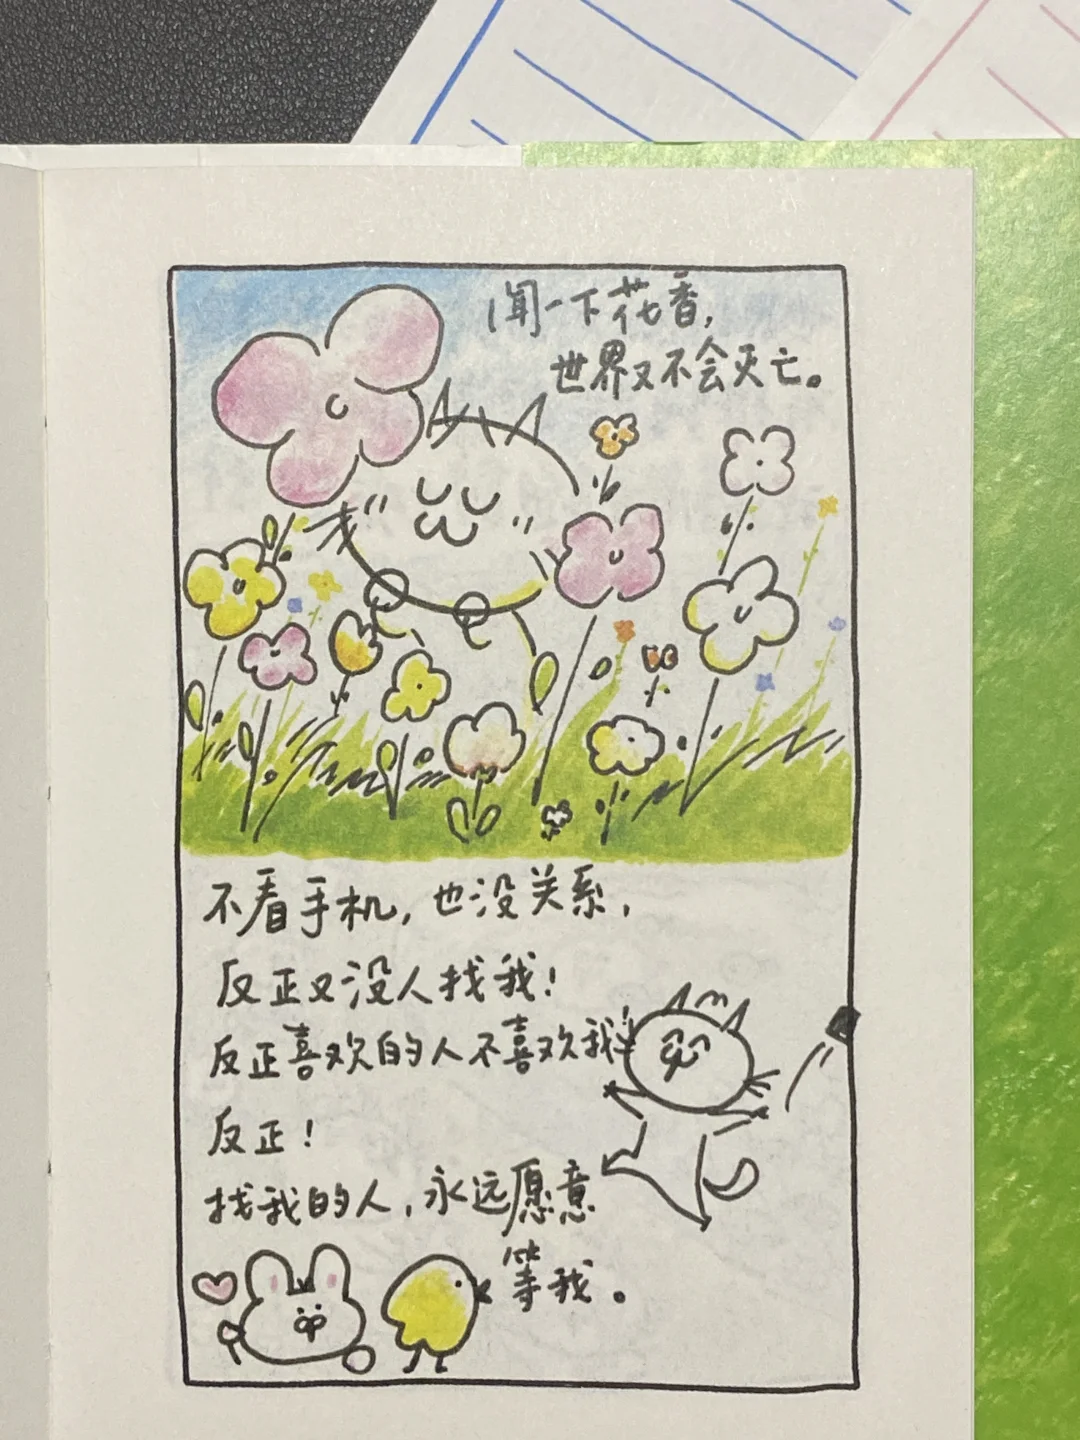 闻一下花香,
世界又不会灭亡。
不看手机,也没关系,
反正又没人找我!
反正喜欢的人不喜欢我!
反正!
找我的人,永远愿意
等我。